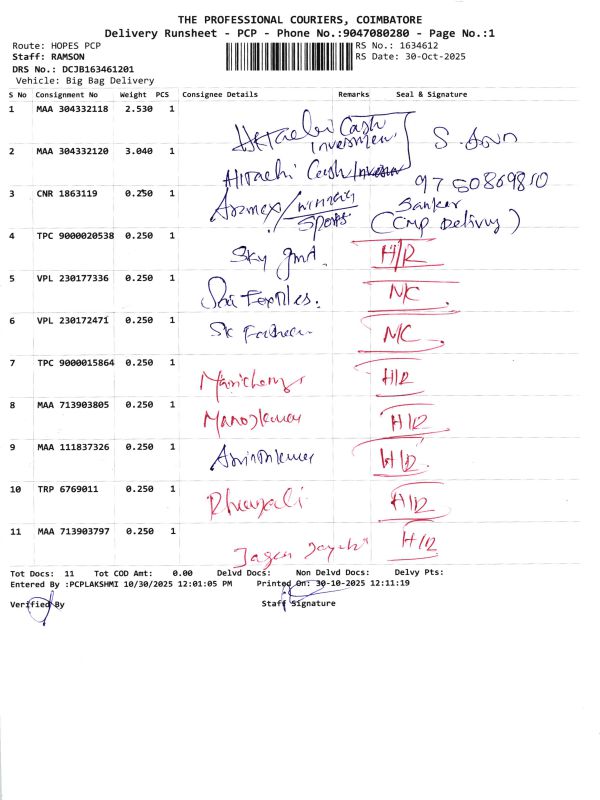 THE PROFESSIONAL COURIERS, COIMBATORE
Delivery Runsheet - PCP - Phone No.:9047080280 - Page No.:1
Route: HOPES PCP
RS No.: 1634612
Staff: RAMSON
RS Date: 30-Oct-2025
DRS No.: DCJB163461201
Vehicle: Big Bag Delivery
S No Consignment No Weight PCS Consignee Details Remarks Seal & Signature
1 MAA 304332118 2.530 1 Hitachi Cash Investment
2 MAA 304332120 3.040 1 Hitachi Cash
9780869810
3 CNR 1863119 0.250 1 Aramex/winners Sports Sanker
(Cmp Delivery)
4 TPC 9000020538 0.250 1 Sky H/R
5 VPL 230177336 0.250 1 N/C
6 VPL 230172471 0.250 1 SK N/C
7 TPC 9000015864 0.250 1 H/R
8 MAA 713903805 0.250 1 Manojkumar H/R
9 MAA 111837326 0.250 1 Aravinthkumar H/R
10 TRP 6769011 0.250 1 H/R
11 MAA 713903797 0.250 1 Jagan H/R
Tot Docs: 11 Tot COD Amt: 0.00 Delvd Docs: Non Delvd Docs: Delvy Pts:
Entered By :PCPLAKSHMI 10/30/2025 12:01:05 PM Printed On: 30-10-2025 12:11:19
Verified By Staff Signature